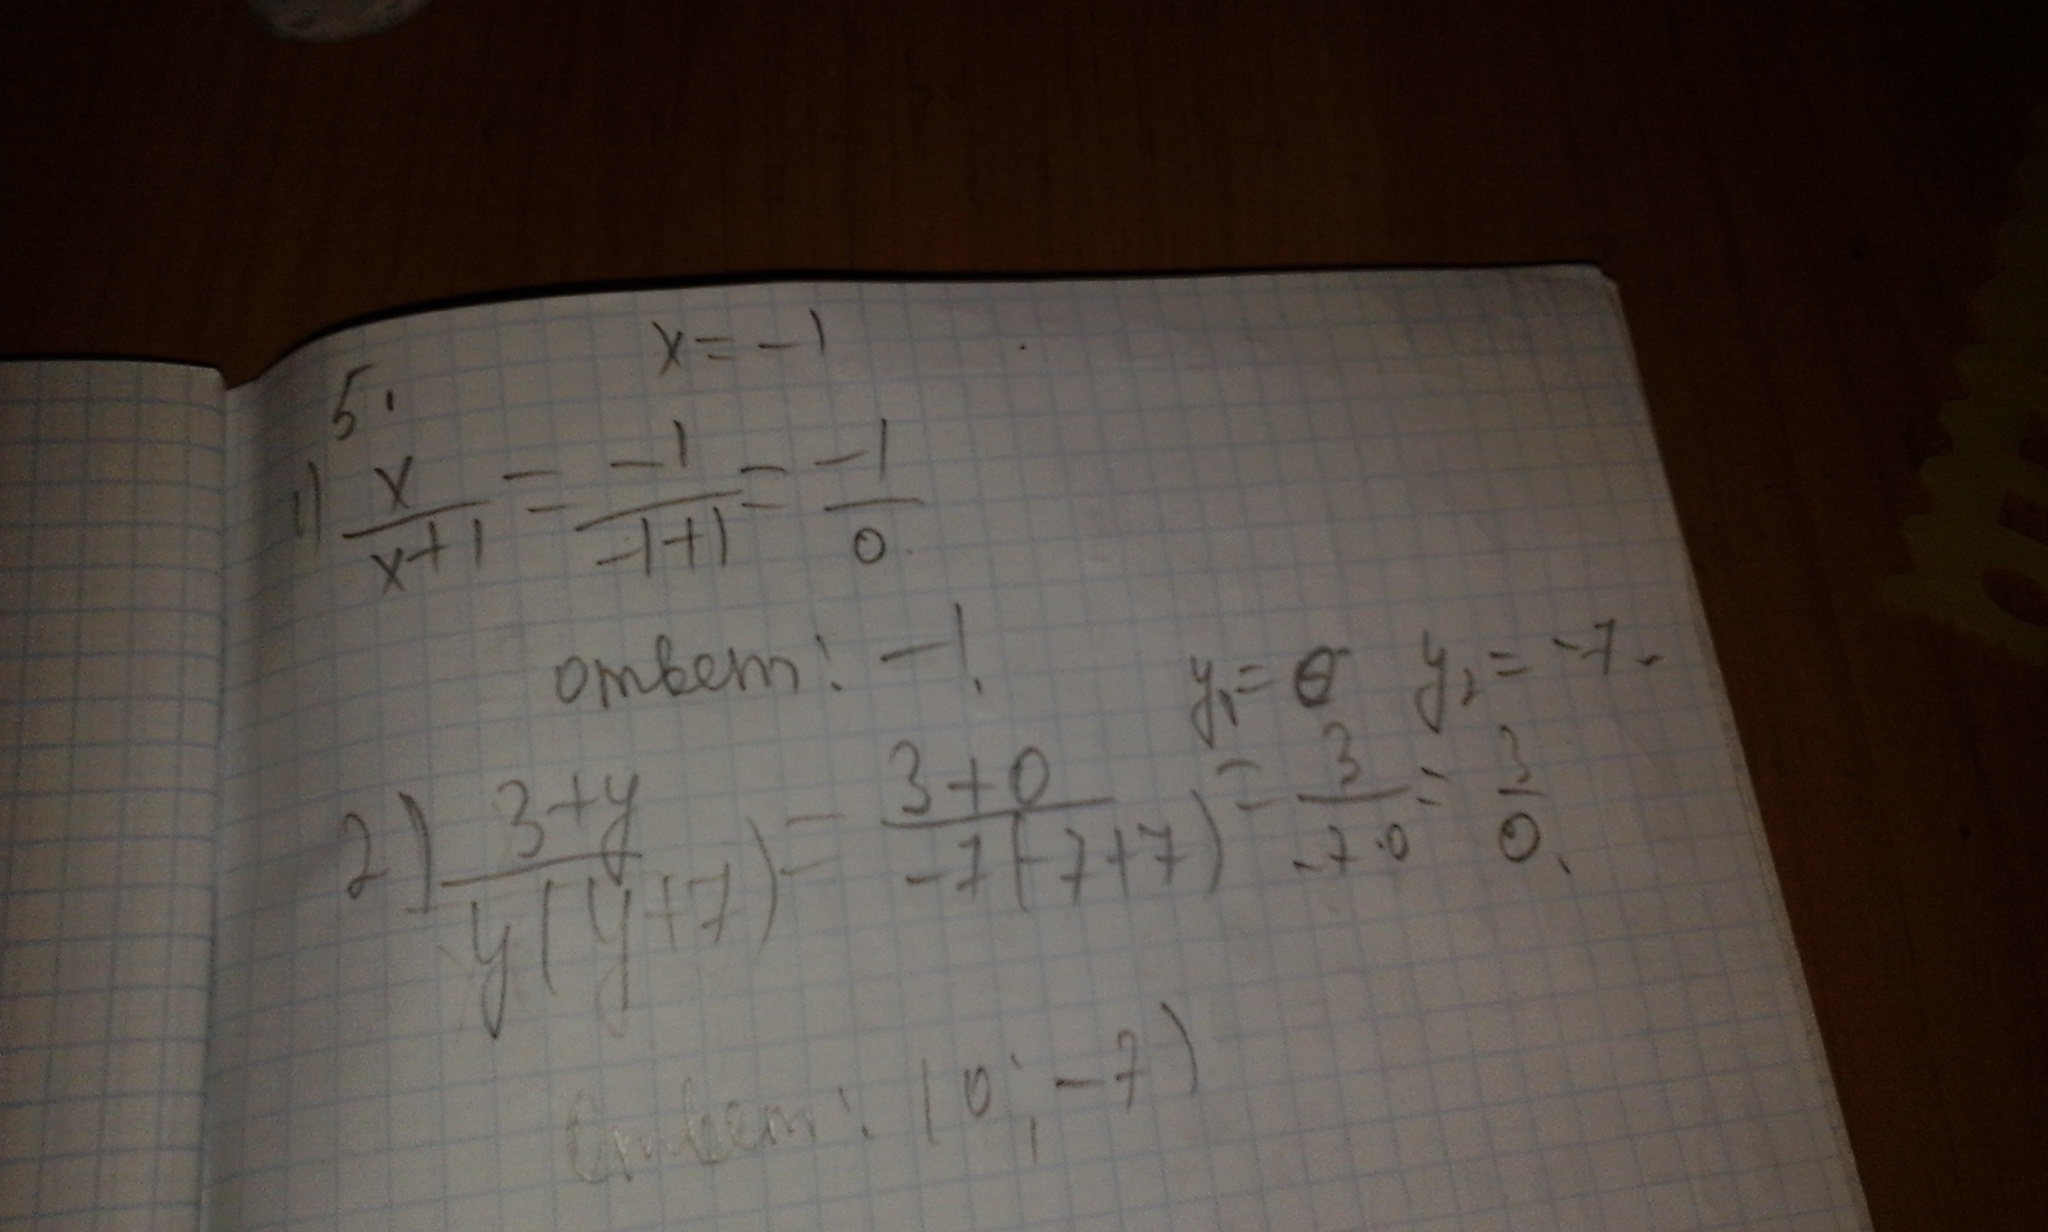 x = -1
5.
1) x/(x+1) = -1/(-1+1) = -1/0
ответ: -1.
y₁ = 0 y₂ = -7.
2) (3+y)/(y(y+7)) = (3+0)/(-7(-7+7)) = 3/(-7·0) = 3/0.
Ответ: (0; -7)